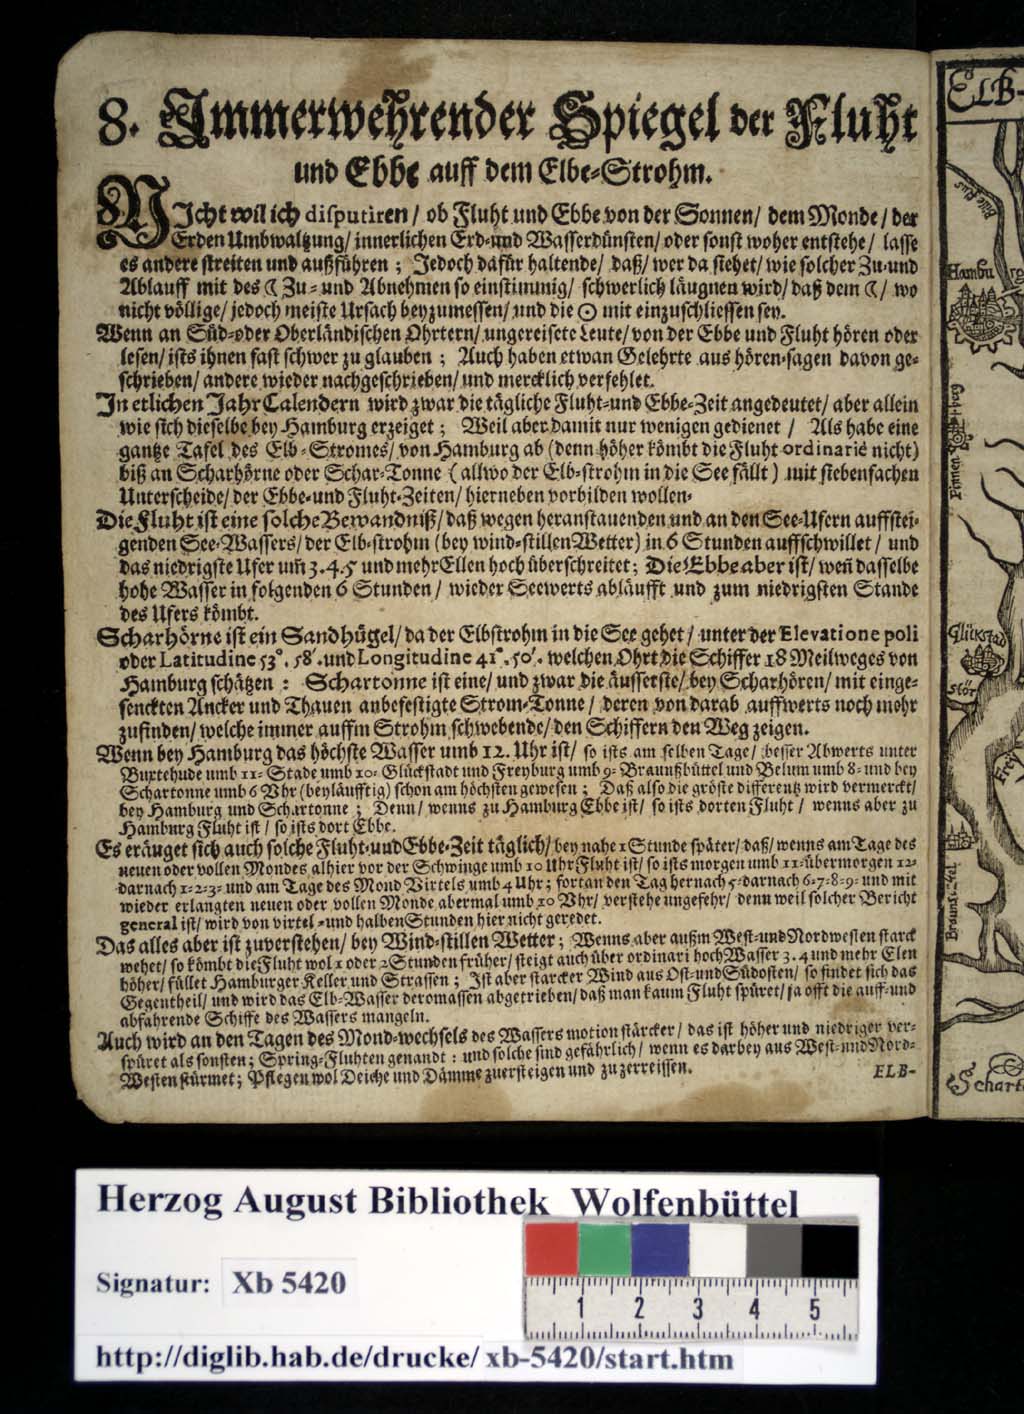 8. Immerwehrender Spiegel der Fluht
und Ebbe auff dem Elbe-Strohm.
NIcht wil ich disputiren / ob Fluht und Ebbe von der Sonnen / dem Monde / der
Erden Umbwaltzung / innerlichen Erd- und Wasserdünsten / oder sonst woher entstehe / lasse
es andere streiten und außführen ; Jedoch dafür haltende / daß / wer da siehet / wie solcher Zu- und
Ablauff mit des ☾ Zu- und Abnehmen so einstimmig / schwerlich läugnen wird / daß dem ☾ / wo
nicht völlige / jedoch meiste Ursach beyzumessen / und die ☉ mit einzuschliessen sey.
Wenn an Süd- oder Oberländischen Ohrtern / ungereisete Leute / von der Ebbe und Fluht hören oder
lesen / ists ihnen fast schwer zu glauben ; Auch haben etwan Gelehrte aus hören-sagen davon ge-
schrieben / andere wieder nachgeschrieben / und mercklich verfehlet.
In etlichen Jahr Calendern wird zwar die tägliche Fluht- und Ebbe-Zeit angedeutet / aber allein
wie sich dieselbe bey Hamburg erzeiget ; Weil aber damit nur wenigen gedienet / Als habe eine
gantze Tafel des Elb-Stromes / von Hamburg ab (denn höher kömbt die Fluht ordinarie nicht)
biß an Scharhörne oder Schar-Tonne (allwo der Elb-strohm in die See fällt) mit siebenfachen
Unterscheide / der Ebbe- und Fluht-Zeiten / hierneben vorbilden wollen.
Die Fluht ist eine solche Bewandniß / daß wegen heranstauenden und an den See-Ufern auffstei-
genden See-Wassers / der Elb-strohm (bey wind-stillen Wetter) in 6 Stunden auffschwillet / und
das niedrigste Ufer um̃ 3. 4. 5 und mehr Ellen hoch überschreitet ; Die Ebbe aber ist / weñ dasselbe
hohe Wasser in folgenden 6 Stunden / wieder Seewerts abläufft und zum niedrigsten Stande
des Ufers kömbt.
Scharhörne ist ein Sandhügel / da der Elbstrohm in die See gehet / unter der Elevatione poli
oder Latitudine 53°. 58'. und Longitudine 41°. 50'. welchen Ohrt die Schiffer 18 Meilweges von
Hamburg schätzen : Schartonne ist eine / und zwar die äusserste / bey Scharhören / mit einge-
senckten Ancker und Thauen anbefestigte Strom-Tonne / deren von darab auffwerts noch mehr
zufinden / welche immer auffm Strohm schwebende / den Schiffern den Weg zeigen.
Wenn bey Hamburg das höchste Wasser umb 12. Uhr ist / so ists am selben Tage / besser Abwerts unter
Buxtehude umb 11- Stade umb 10- Glückstadt und Freyburg umb 9- Braunßbüttel und Belum umb 8- und bey
Schartonne umb 6 Vhr (beyläufftig) schon am höchsten gewesen ; Daß also die gröste differentz wird vermerckt /
bey Hamburg und Schartonne ; Denn / wenns zu Hamburg Ebbe ist / so ists dorten Fluht / wenns aber zu
Hamburg Fluht ist / so ists dort Ebbe.
Es eräuget sich auch solche Fluht- und Ebbe-Zeit täglich / bey nahe 1 Stunde später / daß / wenns am Tage des
neuen oder vollen Mondes alhier vor der Schwinge umb 10 Uhr Fluht ist / so ists morgen umb 11- übermorgen 12-
darnach 1-2-3- und am Tage des Mond Virtels umb 4 Uhr ; fortan den Tag hernach 5- darnach 6-7-8-9- und mit
wieder erlangten neuen oder vollen Monde abermal umb 10 Vhr / verstehe ungefehr / denn weil solcher Bericht
general ist / wird von virtel- und halben Stunden hier nicht geredet.
Das alles aber ist zuverstehen / bey Wind-stillen Wetter ; Wenns aber außm West- und Nordwesten starck
wehet / so kömbt die Fluht wol 1 oder 2 Stunden früher / steigt auch über ordinari hoch Wasser 3. 4 und mehr Elen
höher / füllet Hamburger Keller und Strassen ; Ist aber starcker Wind aus Ost- und Südosten / so findet sich das
Gegentheil / und wird das Elb-Wasser dermassen abgetrieben / daß man kaum Fluht spüret / ja offt die auff- und
abfahrende Schiffe des Wassers mangeln.
Auch wird an den Tagen des Mond-wechsels des Wassers motion stärcker / das ist höher und niedriger ver-
spüret als sonsten ; Spring-Fluhten genandt : und solche sind gefährlich / wenn es darbey aus West- und Nord-
Westen stürmet ; Pflegen wol Deiche und Dämme zuersteigen und zu zerreissen.
ELB-
ELB-
Hambu
Pinnen
Glückstad
Stör
Frey
Scharto
Herzog August Bibliothek Wolfenbüttel
Signatur: Xb 5420
1 2 3 4 5
http://diglib.hab.de/drucke/xb-5420/start.htm